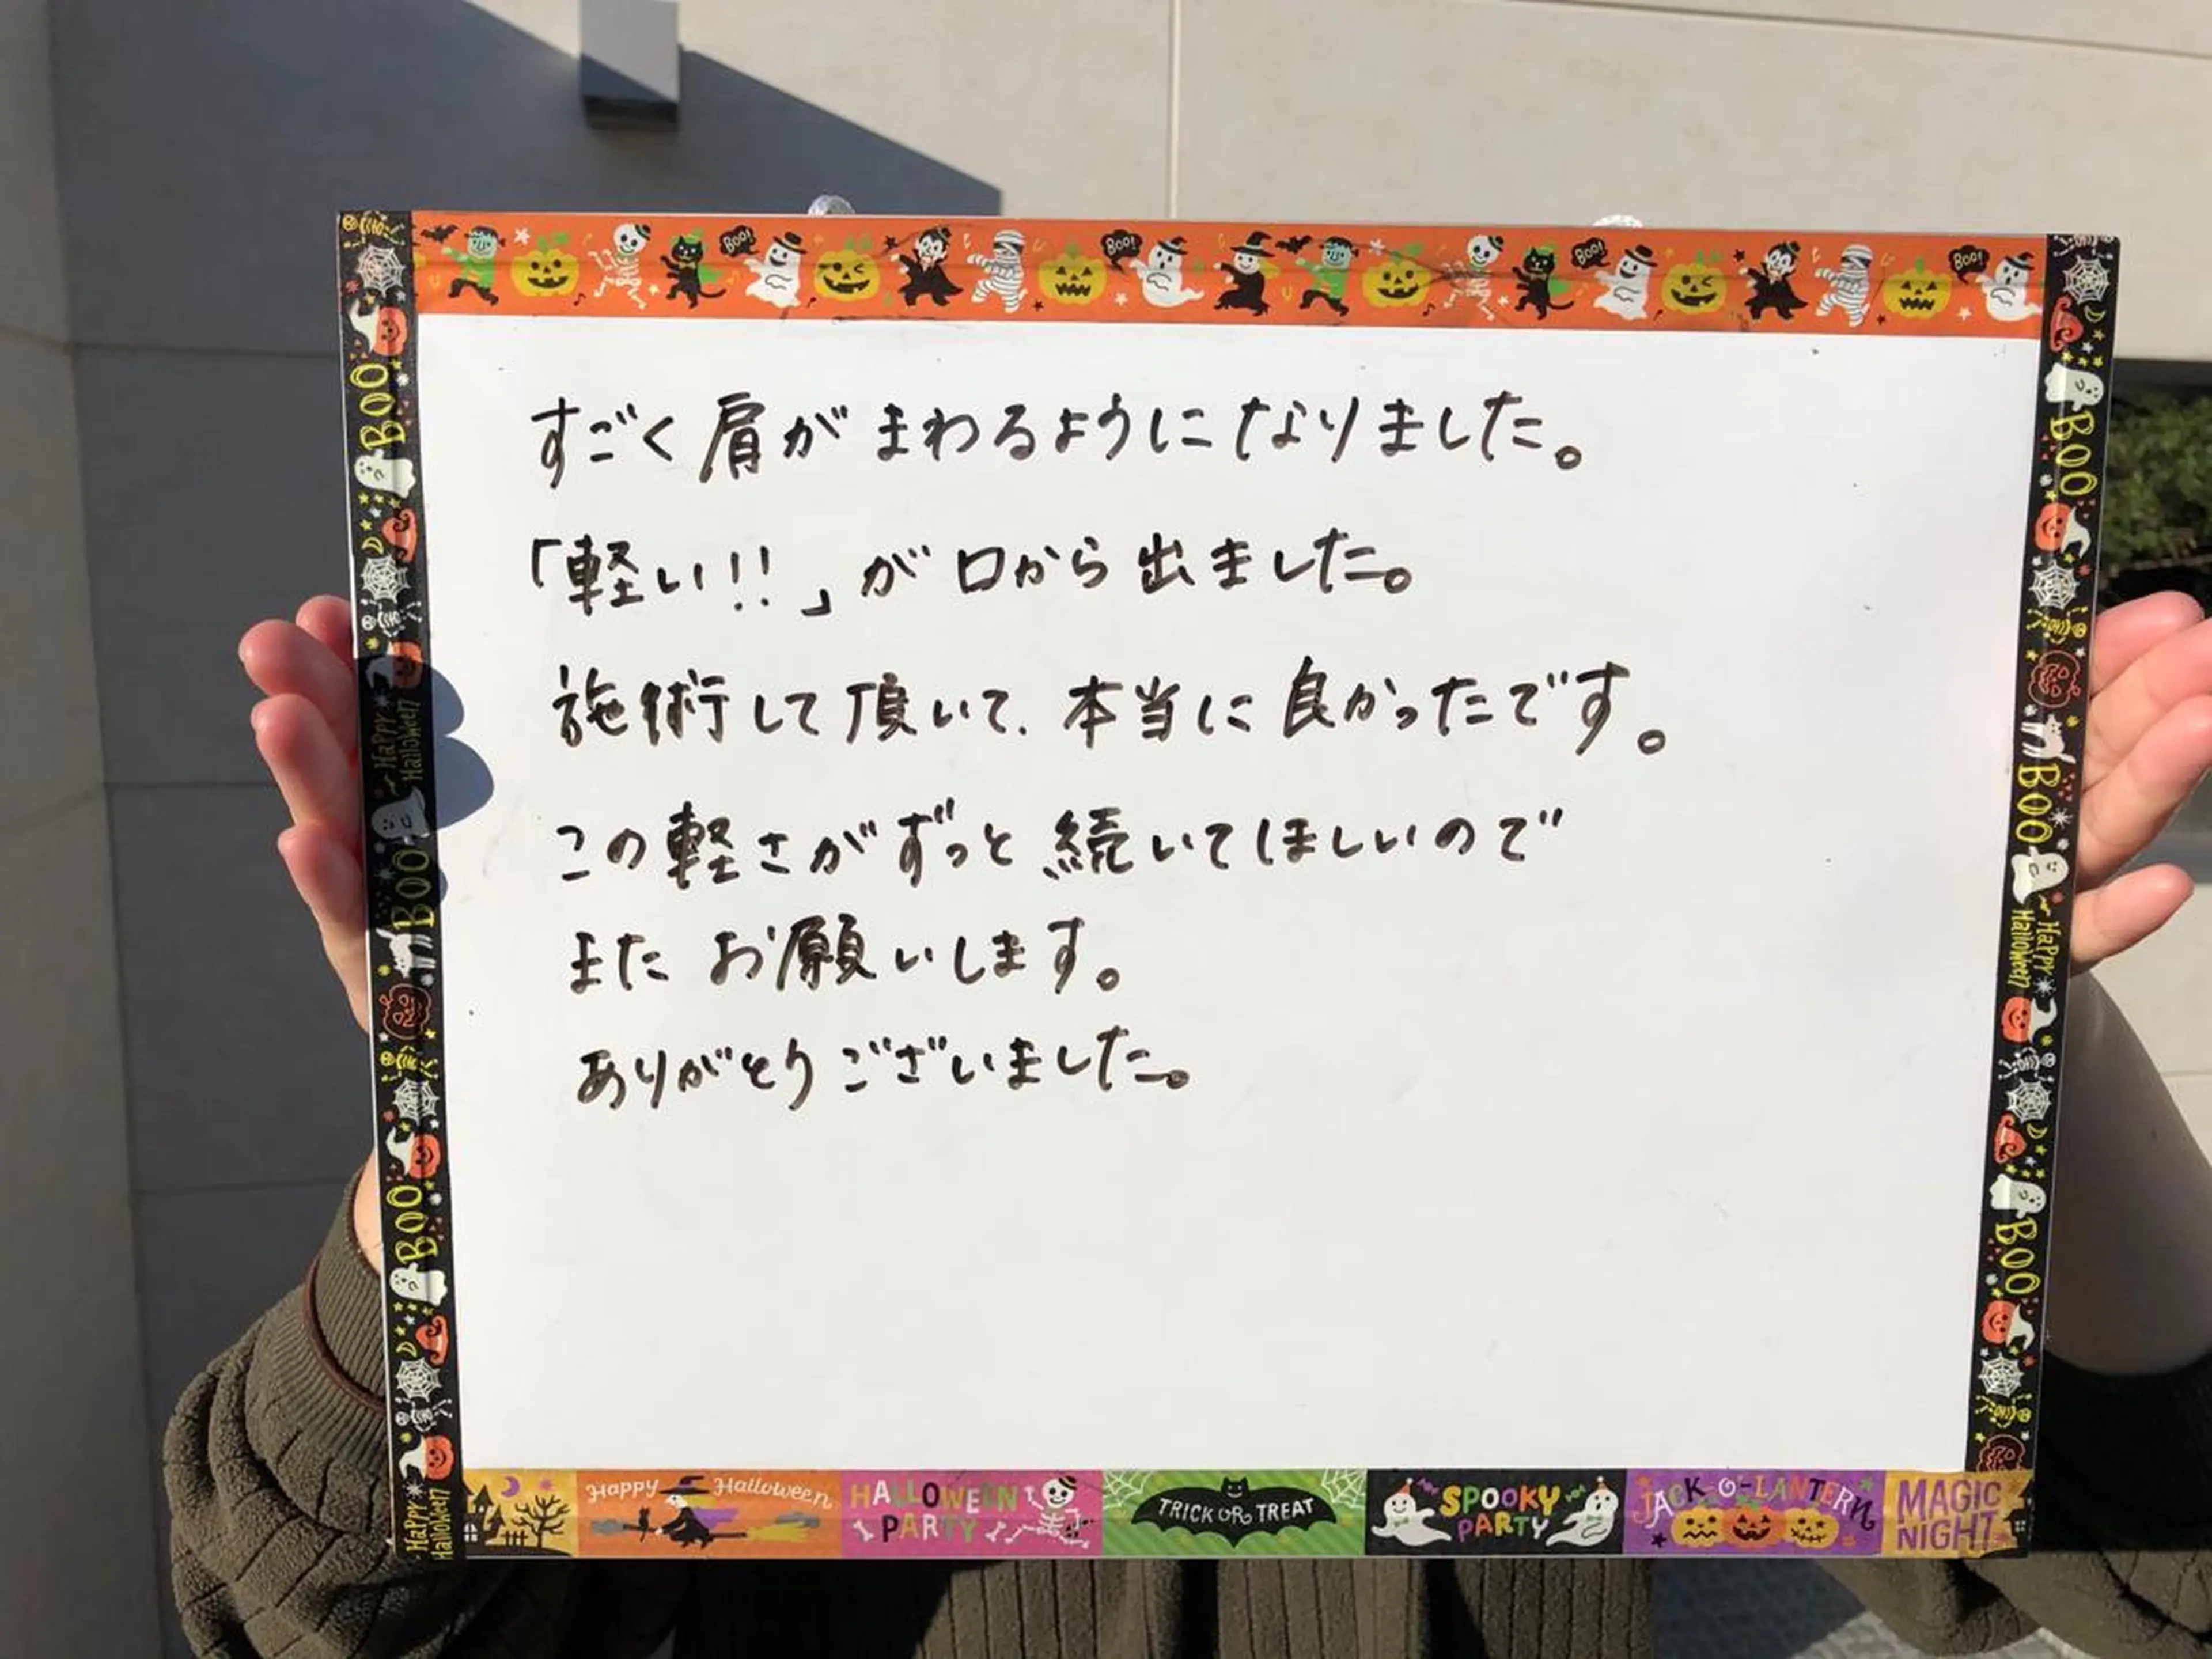 BOO! BOO! BOO! BOO!
すごく肩がまわるようになりました。
「軽い!!」が口から出ました。
施術して頂いて、本当に良かったです。
この軽さがずっと続いてほしいので
またお願いします。
ありがとうございました。
BOO
Happy Halloween
BOO
BOO
Happy Halloween
BOO
BOO
Happy Halloween
BOO
Happy Halloween
HALLOWEEN PARTY
TRICK OR TREAT
SPOOKY PARTY
JACK-O'-LANTERN
MAGIC NIGHT